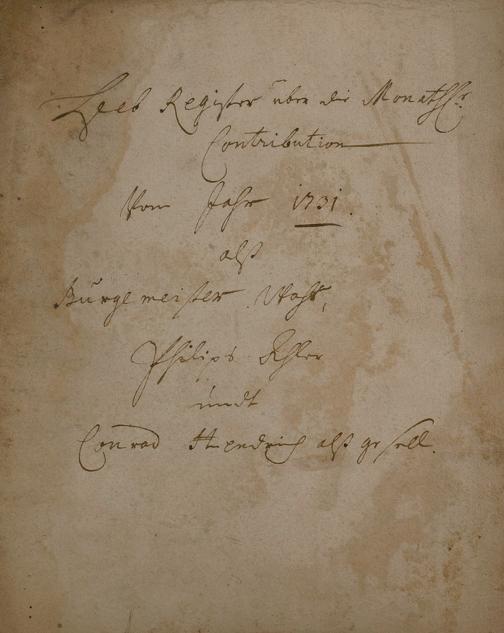 Heeb Register über die Monathl:
Contribution
Vom Jahr 1731.
alß
Bürgemeister
Philips Ehler
undt
Conrad Hendrich alß gesell.